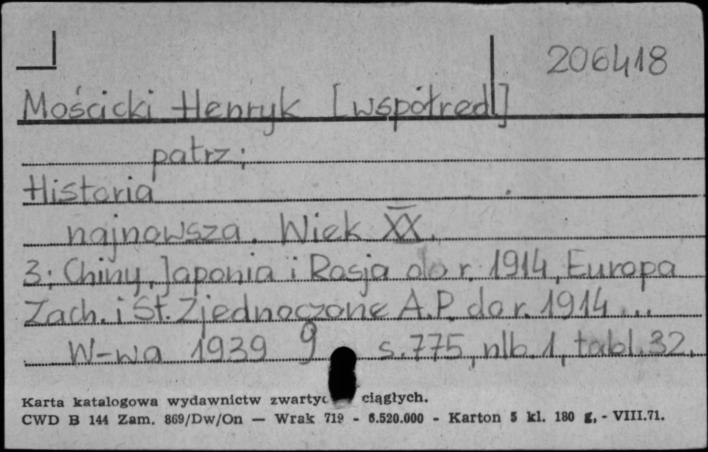 206418
Mościcki Henryk [współred]
patrz:
Historia
najnowsza. Wiek XX.
3: Chiny, Japonia i Rosja do r. 1914, Europa
Zach. i St. Zjednoczone A.P. do r. 1914...
W-wa 1939 9 s. 775, nlb. 1, tabl. 32.
Karta katalogowa wydawnictw ciągłych.
CWD B 144 Zam. 869/Dw/On — Wrak 719 - 6.520.000 - Karton 5 kl. 180 g, - VIII.71.